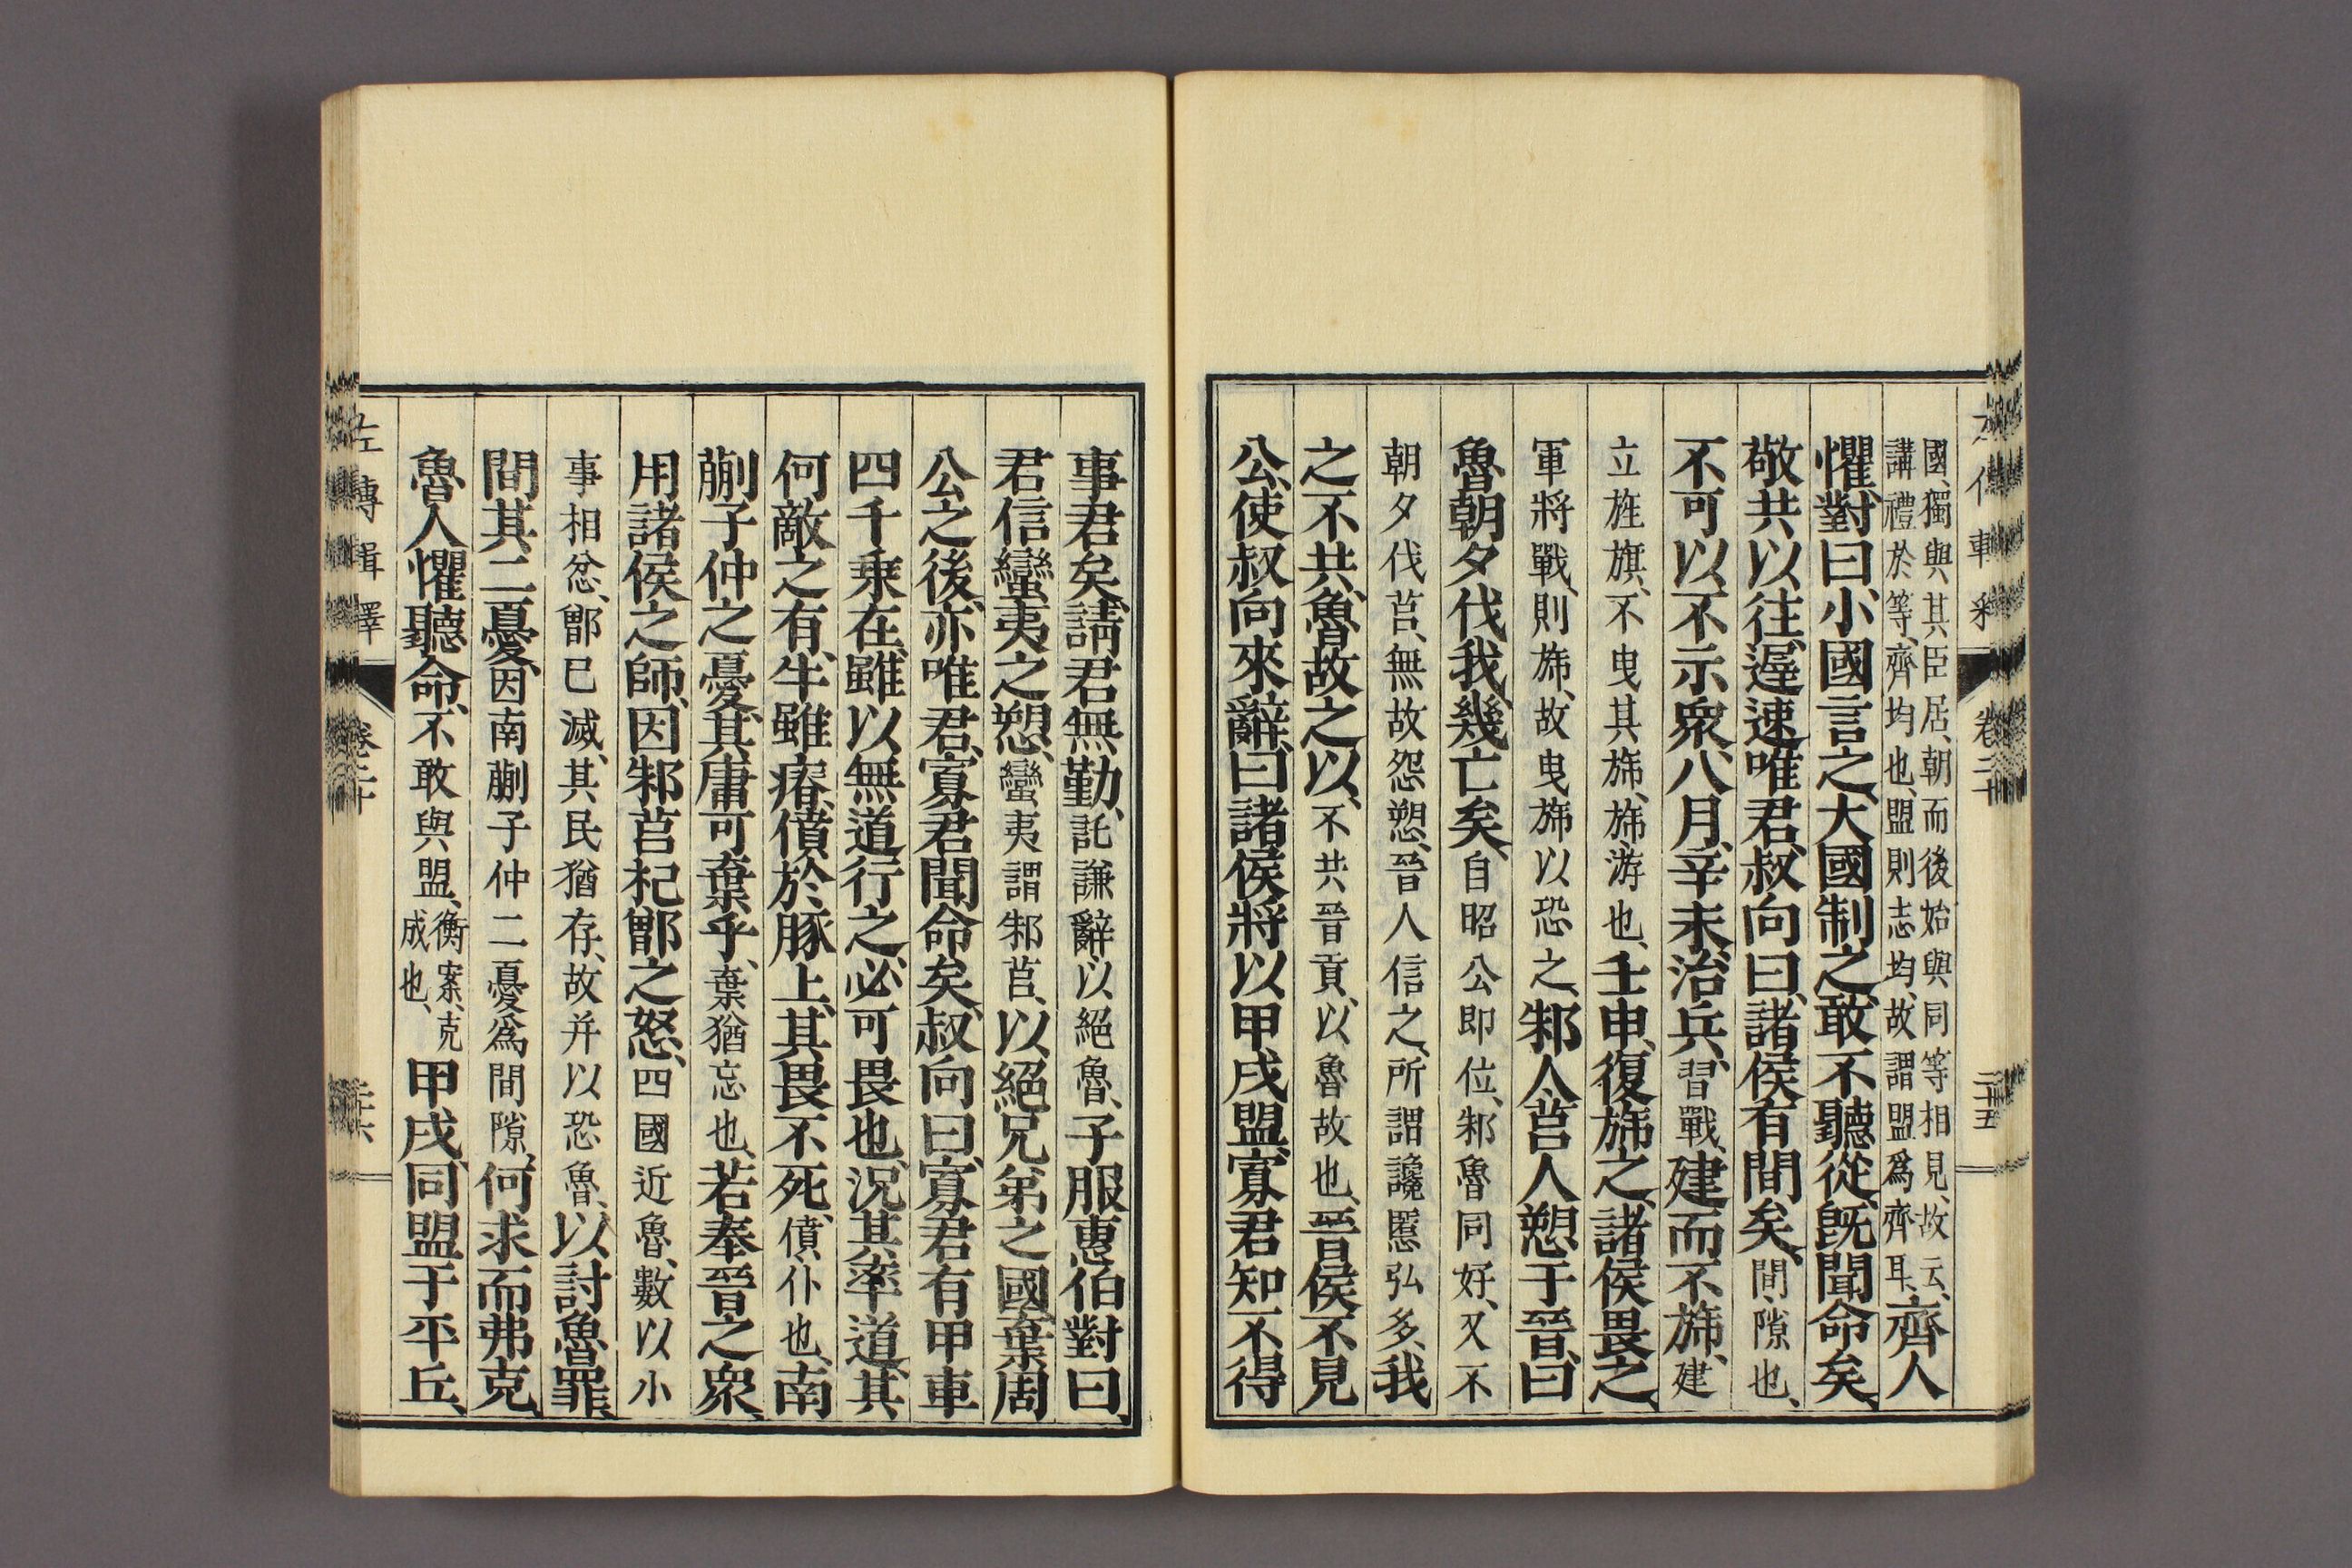 國、獨與、其臣居、朝而後始與同等相見、故云、
講禮於等、齊均也、盟則志均、故謂盟爲齊耳、齊人
懼、對曰、小國言之、大國制之、敢不聽從、既聞命矣、
敬共以往、遲速唯君、叔向曰、諸侯有間矣、間、隙也、
不可以不示衆、八月、辛未、治兵、習戰、建而不旆、建
立旌旗、不曳其旆、旆、游也、壬申、復旆之、諸侯畏之、
軍將戰、則旆、故曳旆以恐之、邾人莒人愬于晉、曰
魯朝夕伐我、幾亡矣、自昭公即位、邾魯同好、又不
朝夕伐莒、無故怨愬、晉人信之、所謂讒慝弘多、我
之不共、魯故之以、不共晉貢、以魯故也、晉侯不見
公、使叔向來辭、曰、諸侯將以甲戌盟、寡君知不得
卷二十
二十五
事君矣、請君無勤、託謙辭以絕魯、子服惠伯對曰、
君信蠻夷之愬、蠻夷謂邾莒、以絕兄弟之國、棄周
公之後、亦唯君、寡君聞命矣、叔向曰、寡君有甲車
四千乘在、雖以無道行之、必可畏也、況其率道、其
何敵之有、牛雖瘠、僨於豚上、其畏不死、僨、仆也、南
蒯子仲之憂、其庸可棄乎、棄猶忘也、若奉晉之衆、
用諸侯之師、因邾莒杞鄫之怒、四國近魯、數以小
事相忿、鄫已滅、其民猶存、故并以恐魯、以討魯罪、
間其二憂、因南蒯子仲二憂爲間隙、何求而弗克、
魯人懼聽命、不敢與盟、衡案、克成也、甲戌、同盟于平丘、
左傳輯釋
卷二十
二十六